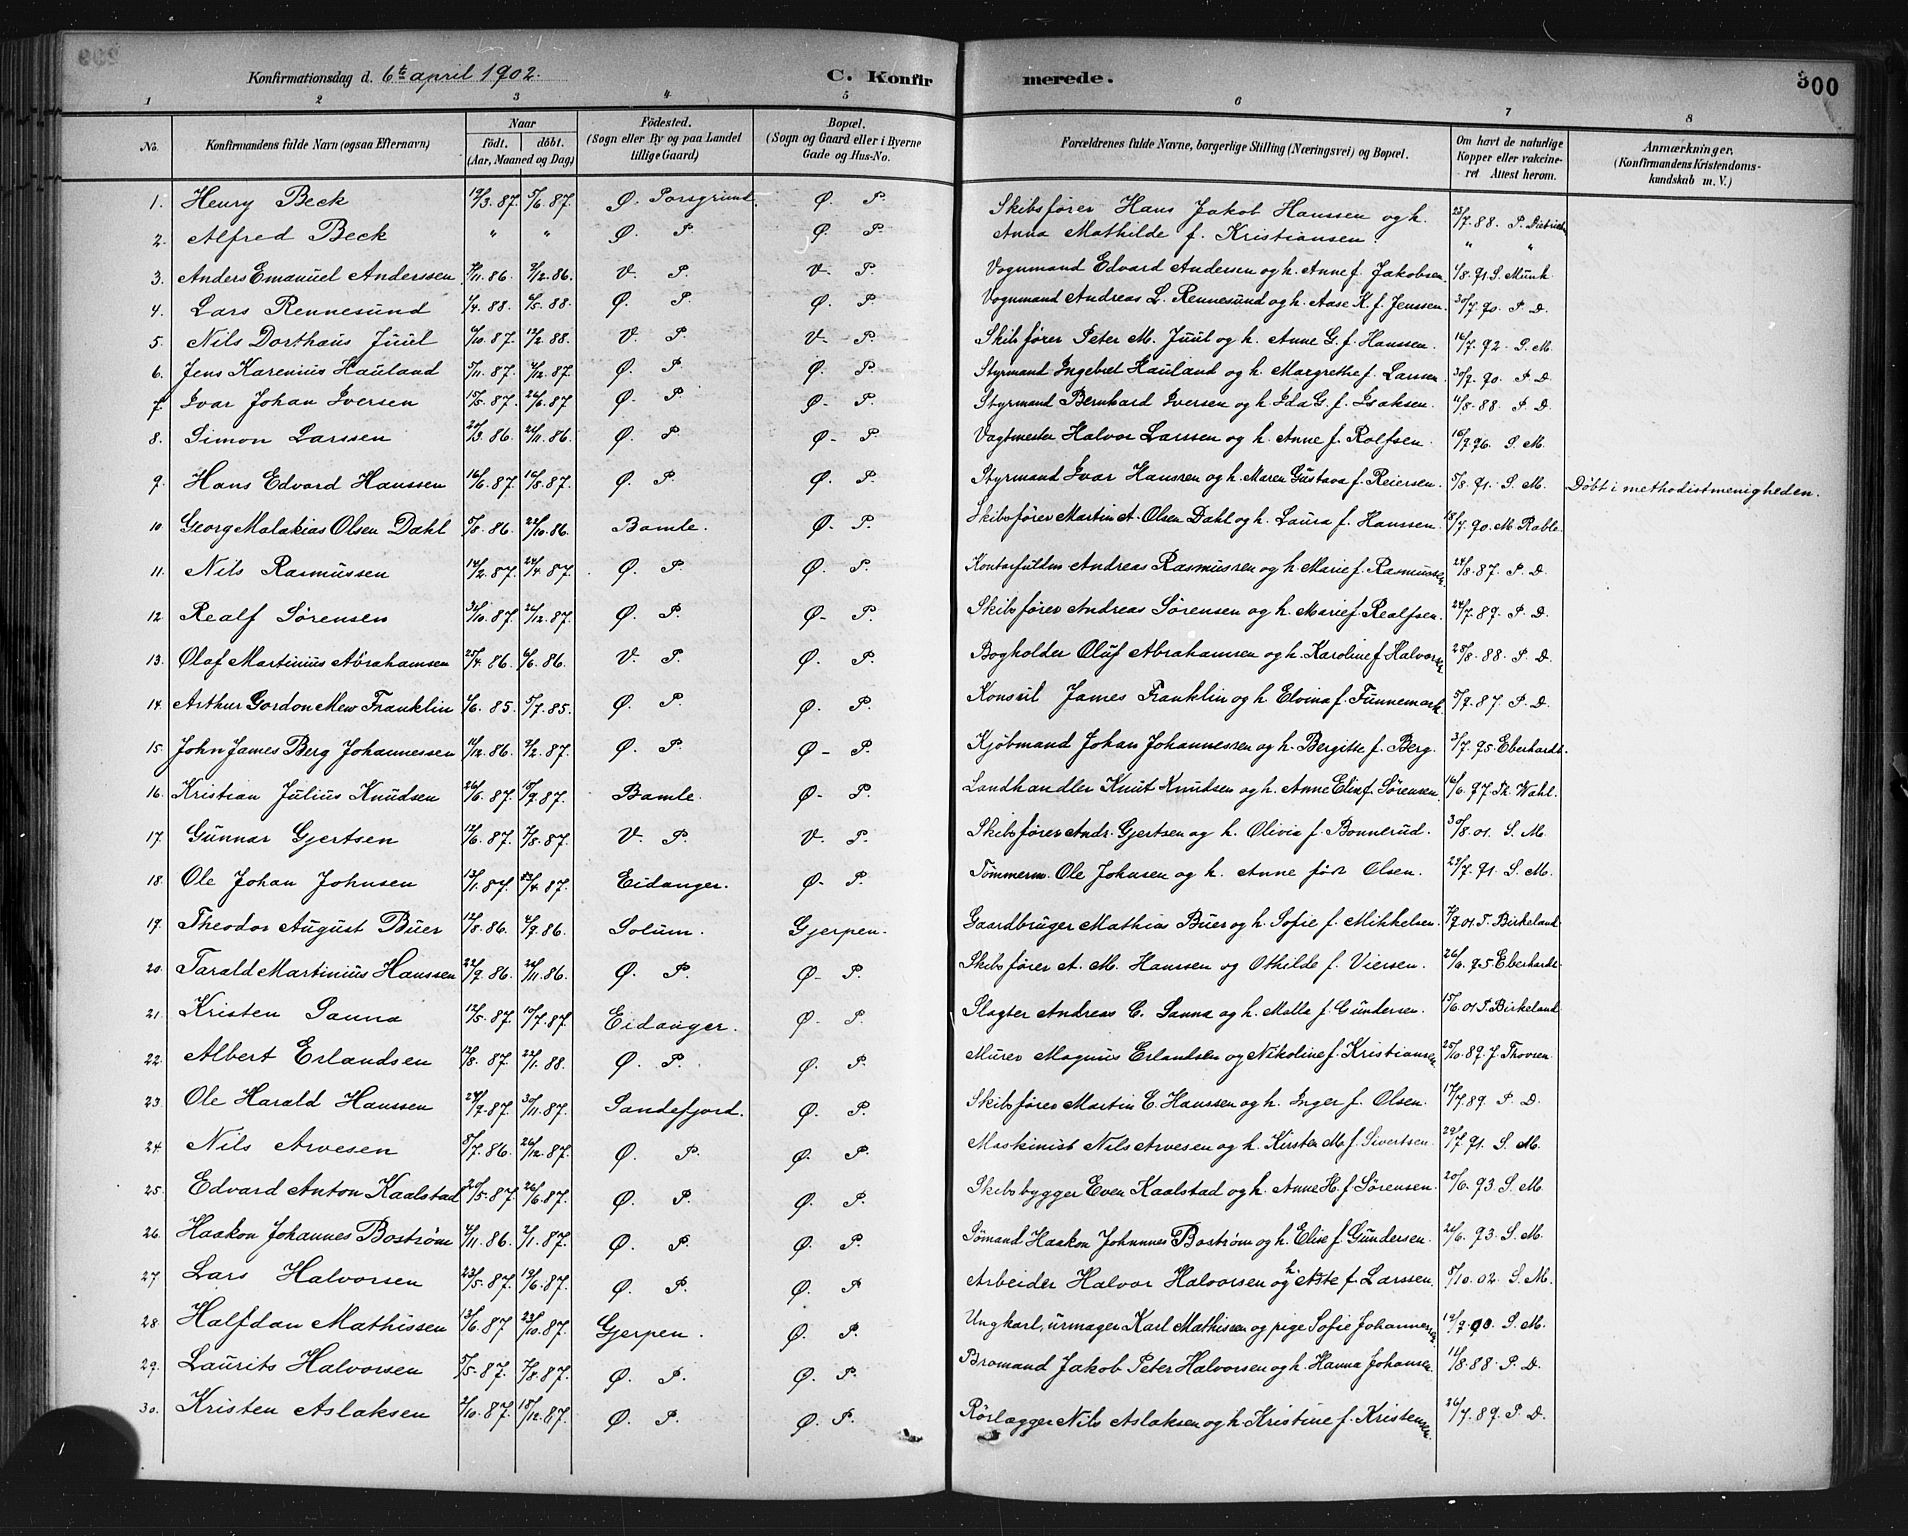 Konfirmationsdag d. 6te april 1902. C. Konfirmerede. 300
1 2 3 4 5 6 7 8
No. Konfirmandens fulde Navn (ogsaa Efternavn) Naar født. døbt. (Aar, Maaned og Dag) Fødested. (Sogn eller By og paa Landet tillige Gaard) Bopæl. (Sogn og Gaard eller i Byerne Gade og Hus-No. Forældrenes fulde Navne, borgerlige Stilling (Næringsvei) og Bopæl. Om havt de naturlige Kopper eller vakcineret Attest herom. Anmærkninger. (Konfirmandens Kristendomskundskab m. V.)
1. Henry Beck 19/3.87. 5/6.87. Ø. Porsgrund. Ø. P. Skibsfører Hans Jakob Hanssen og h. 25/7.88. P.
2. Alfred Beck " " Ø. P. Ø. P. Anna Mathilde f. Kristiansen. " "
3. Anders Emanuel Anderssen .86. .86. V. P. V. P. Vognmand Edvard Andersen og h. Anne f. Jakobsen. 1/8.91. S. Munk
4. Lars Rennesund /4.88. /5.88. Ø. P. Ø. P. Vognmand Andreas L. Rennesund og h. Aase K. f. Jenssen. 30/7.90. P. D.
5. Nils Dorthaus Juul /10.87. 12/2.88. V. P. V. P. Skibsfører Peter M. Juul og h. Anne G. f. Hanssen. 16/7.92. S. M.
6. Jens Karenius Hauland /11.87. /12.87. Ø. P. Ø. P. Styrmand Ingebret Hauland og h. Margrethe f. Larsen. 30/7.90. P. D.
7. Ivar Johan Iversen 15/5.87. 26/6.87 Ø. P. Ø. P. Styrmand Bernhard Iversen og h. Ida G. f. Isaksen. 11/8.88. P. D.
8. Simon Larssen 20/3.86. /11.86. Ø. P. Ø. P. Vagtmester Halvor Larssen og h. Anne f. Rolfsen. 16/9.96. S. M.
9. Hans Edvard Hanssen 16/6.87. /8.87. Ø. P. Ø. P. Styrmand Ivar Hanssen og h. Maren Gustava f. Reiersen. 5/8.91. S. M. Døbt i methodistmenigheden.
10. Georg Malakias Olsen Dahl 5/8.86. 22/10.86. Bamle. Ø. P. Skibsfører Martin A. Olsen Dahl og h. Laura f. Hanssen. 18/7.90. M.
11. Nils Rasmussen 14/2.87. 24/4.87. Ø. P. Ø. P. Kontorfuldm Andreas Rasmussen og h. Marie f. Rasmussen. 24/8.87. P. D.
12. Realf Sørensen 31/10.87. 26/12.87. Ø. P. Ø. P. Skibsfører Andreas Sørensen og h. Marie f. Realfsen. 24/7.89. P. D.
13. Olaf Martinius Abrahamsen 25/4.86. 6/6.86. V. P. Ø. P. Bogholder Oluf Abrahamsen og h. Karoline f. Halvorsen 28/8.88. P. D.
14. Arthur Gordon Mew Franklin /6.85. 5/7.85. Ø. P. Ø. P. Konsul James Franklin og h. Elvina f. Funnemark. 5/9.87. P. D.
15. John James Berg Johannessen /12.86. 9/2.87. Ø. P. Ø. P. Kjøbmand Johan Johannessen og h. Bergitte f. Berg. 3/7.95. Eberhardt.
16. Kristian Julius Knudsen 26/6.87. 18/9.87. Bamle. Ø. P. Landhandler Knut Knutsen og h. Anne Elise f. Sørensen. 16/6.97. Th. Wahl.
17. Gunnar Gjertsen 12/6.87. 7/8.87. V. P. V. P. Skibsfører Andr. Gjertsen og h. Olivia f. Bonnerud. 30/8.01. S. M.
18. Ole Johan Johnsen 13/1.87. 23/4.87. Eidanger. Ø. P. Tømmerm. Ole Johnsen og h. Anne født Olsen. 29/7.91. S. M.
19. Theodor August Buer 12/8.86. /9.86. Solum. Gjerpen. Gaardbruger Mathias Buer og h. Sofie f. Mikkelsen. /9.01. T. Birkeland
20. Tarald Martinius Hanssen 22/9.86. /11.86. Ø. P. Ø. P. Skibsfører A. M. Hanssen og Othilde f. Viersen. 26/6.95. Eberhardt.
21. Kristen Sanna 12/5.87. 10/7.87. Eidanger. Ø. P. Slagter Andreas C. Sanna og h. Malla f. Gundersen. 15/6.01. T. Birkeland
22. Albert Erlandsen 12/8.87. 22/1.88. Ø. P. Ø. P. Murer Magnus Erlandsen og Nikoline f. Kristiansen 25/10.89. J. Thovsen.
23. Ole Harald Hanssen 24/7.87. 30/11.87. Sandefjord. Ø. P. Skibsfører Martin E. Hanssen og h. Inger f. Olsen. 17/7.89. P. D.
24. Nils Arvesen 8/7.86. 26/12.87. Ø. P. Ø. P. Maskinist Nils Arvesen og h. Kirsten M. f. Sivertsen. 29/7.91. S. M.
25. Edvard Anton Kaalstad 20/5.87. 26/6.87. Ø. P. Ø. P. Skibsbygger Even Kaalstad og h. Anne H. f. Sørensen. 20/6.93. S. M.
26. Haakon Johannes Bostrøm /11.86. 2/1.87. Ø. P. Ø. P. Sømand Haakon Johannes Bostrøm og h. Elise f. Gundersen. 24/6.93. S. M.
27. Lars Halvorsen 23/5.87. 19/6.87. Ø. P. Ø. P Arbeider Halvor Halvorsen og h. Aste f. Larssen. 8/10.02. S. M.
28. Halfdan Mathissen 13/6.87 23/10.87. Gjerpen. Ø. P. Ungkarl, urmager Karl Mathissen og pige Sofie Johannessen 19/9.90. S. M.
29. Laurits Halvorsen 5/5.87. 7/8.87. Ø. P. Ø. P. Bromand Jakob Peter Halvorsen og h. Hanna Johansen. 11/8.88. P. D.
30. Kristen Aslaksen 2/10.87. 18/12.87. Ø. P. Ø. P. Rørlægger Nils Aslaksen og h. Kristine f. Kristensen. 26/7.89. P. D.